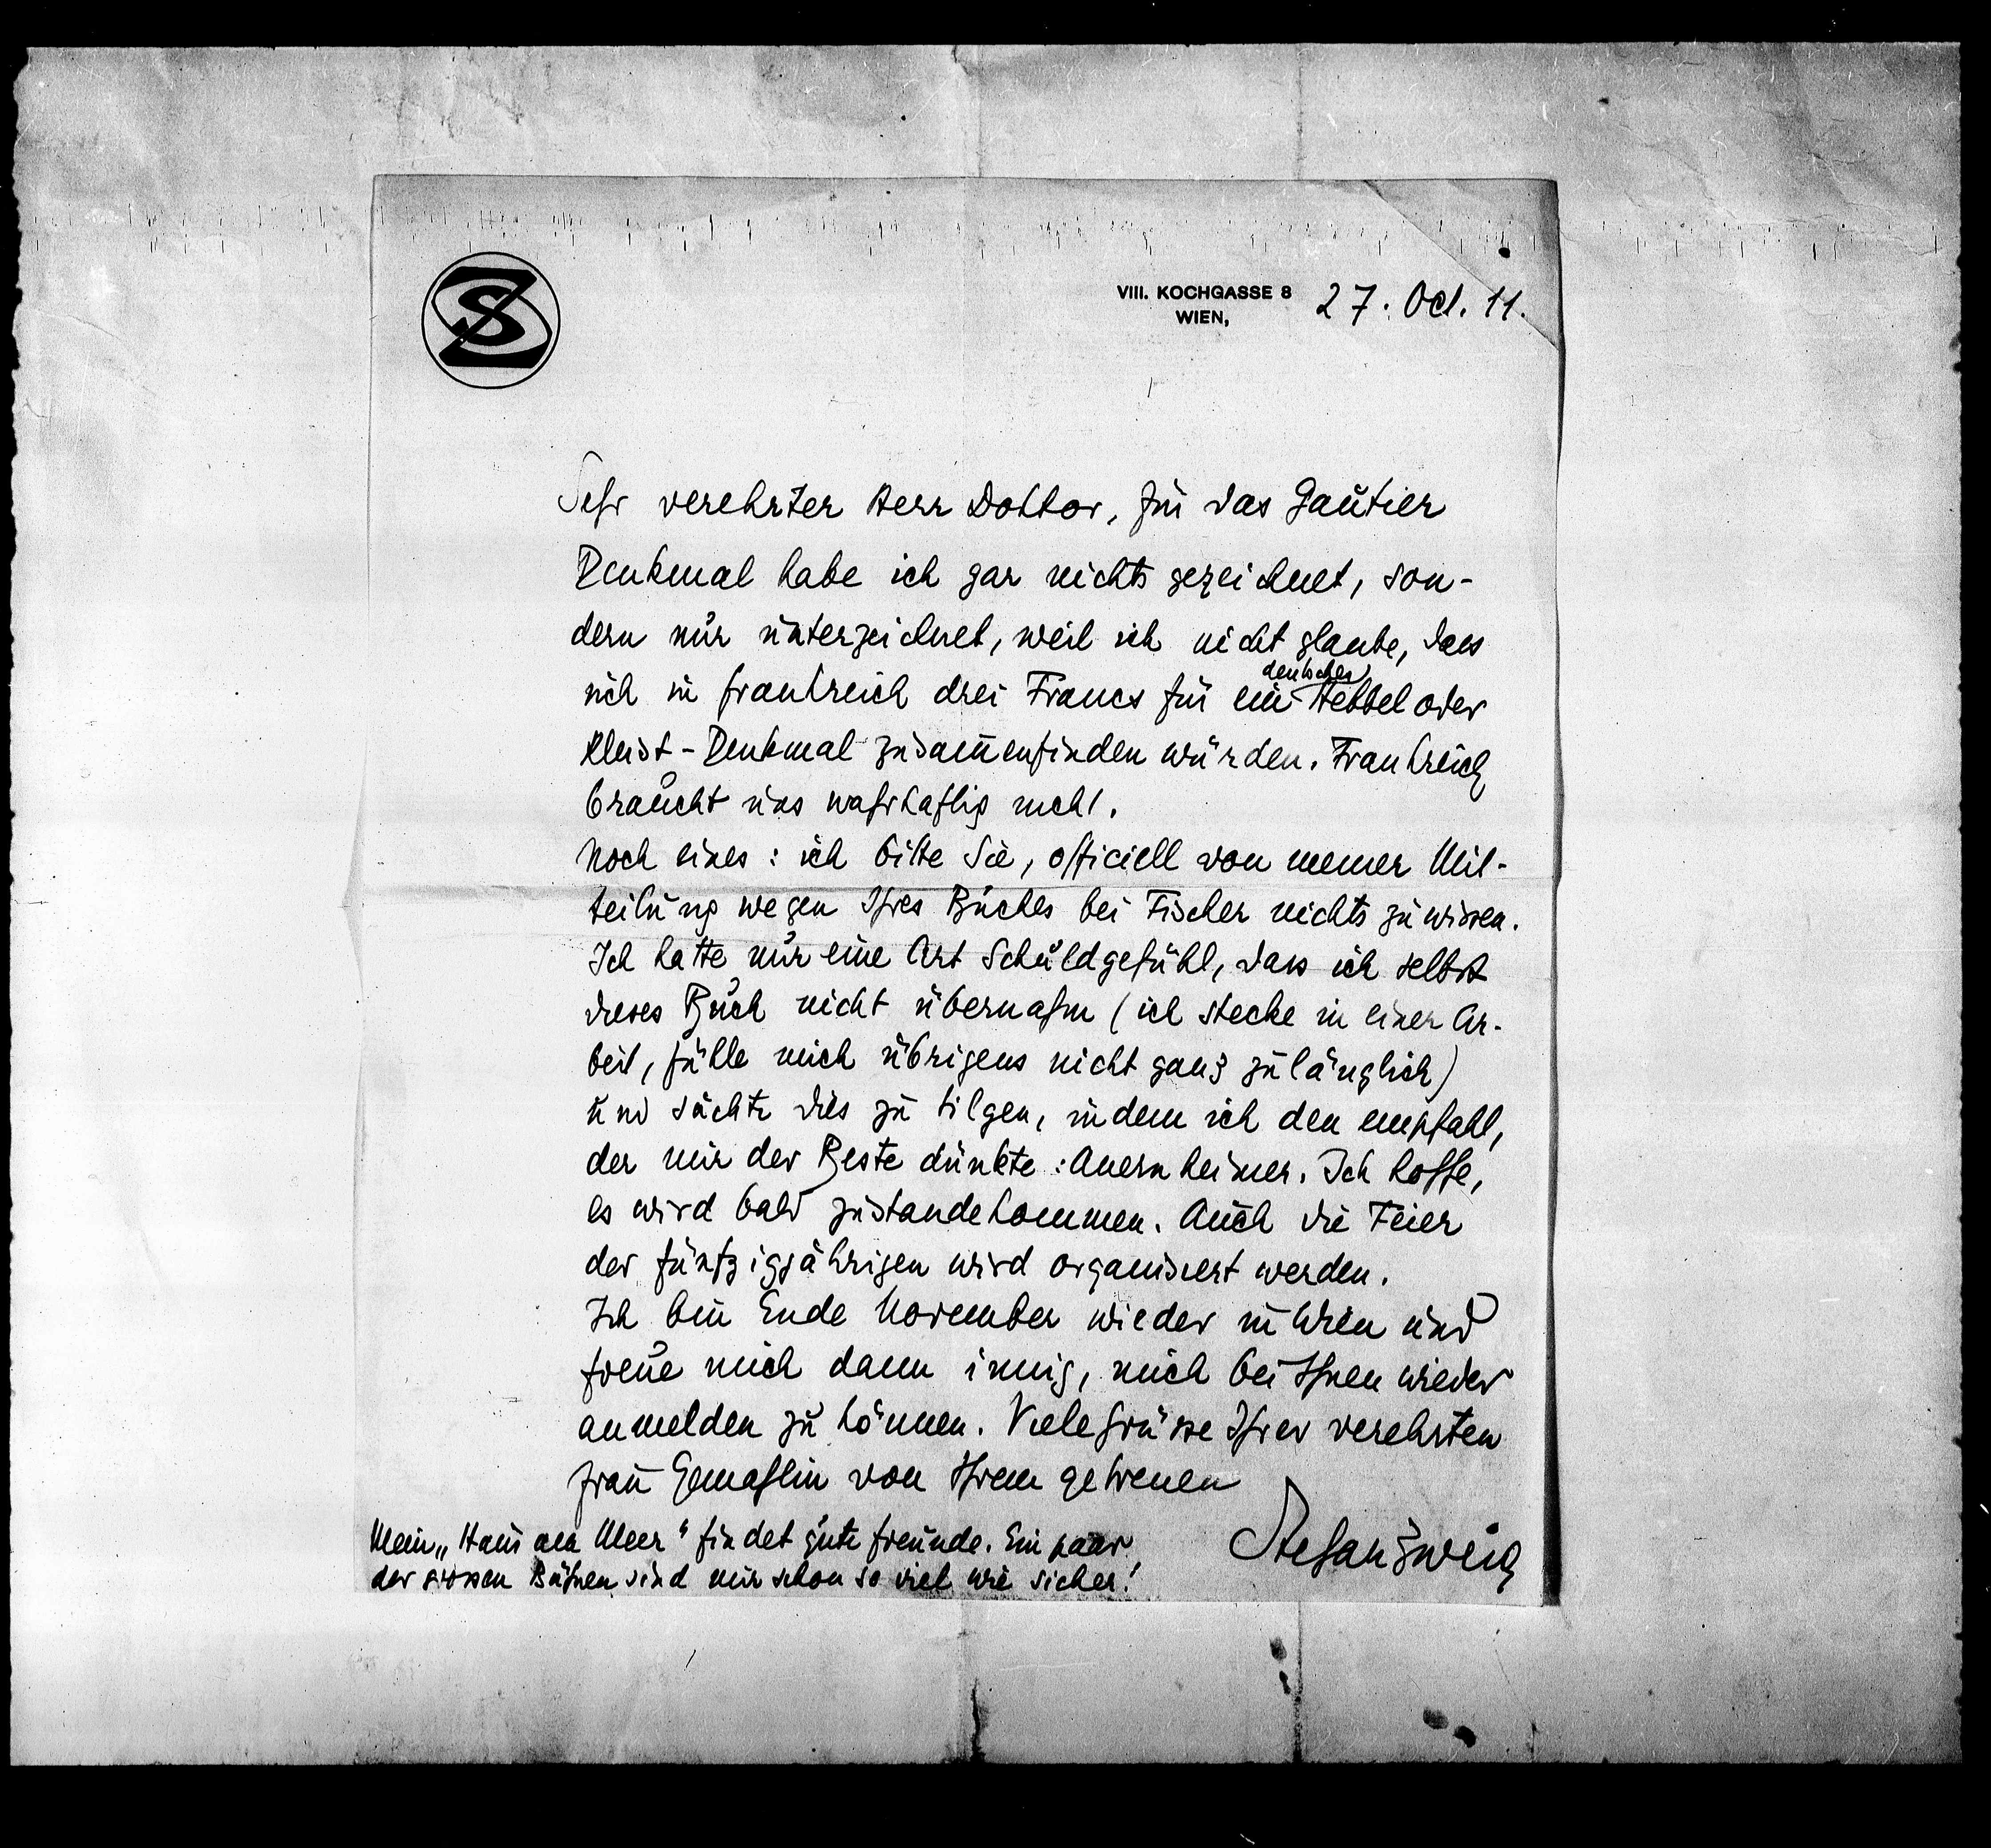 SZ
VIII. KOCHGASSE 8
WIEN,
27. Oct. 11.
Sehr verehrter Herr Doktor, für das Gautier
Denkmal habe ich gar nichts gezeichnet, son-
dern nur unterzeichnet, weil ich nicht glaube, dass
sich in Frankreich drei Francs für ein deutsches Hebbel oder
Kleist-Denkmal zusam̅enfinden würden. Frankreich
braucht uns wahrhaftig nicht.
Noch eines: ich bitte Sie, officiell von meiner Mit-
teilung wegen Ihres Buches bei Fischer nichts zu wissen.
Ich hatte nur eine Art Schuldgefühl, dass ich selbst
dieses Buch nicht übernahm (ich stecke in einer Ar-
beit, fühle mich übrigens nicht ganz zulänglich)
und suchte dies zu tilgen, indem ich den empfahl,
der mir der Beste dünkte: Auernheimer. Ich hoffe,
es wird bald zustandekommen. Auch die Feier
der fünfzigjährigen wird organisiert werden.
Ich bin Ende November wieder in Wien und
freue mich dann innig, mich bei Ihnen wieder
anmelden zu können. Viele Grüsse Ihrer verehrten
Frau Gemahlin von Ihrem getreuen
Stefan Zweig
Mein „Haus am Meer“ findet gute Freunde. Ein paar
der grossen Bühnen sind mir schon so viel wie sicher!